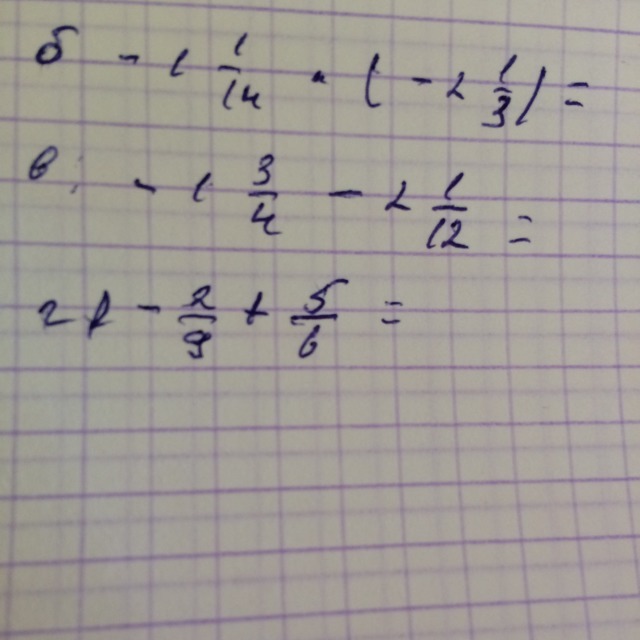 б - 1 1/14 · ( - 2 1/3) =
в, - 1 3/4 - 2 1/12 =
г) - 2/9 + 5/6 =